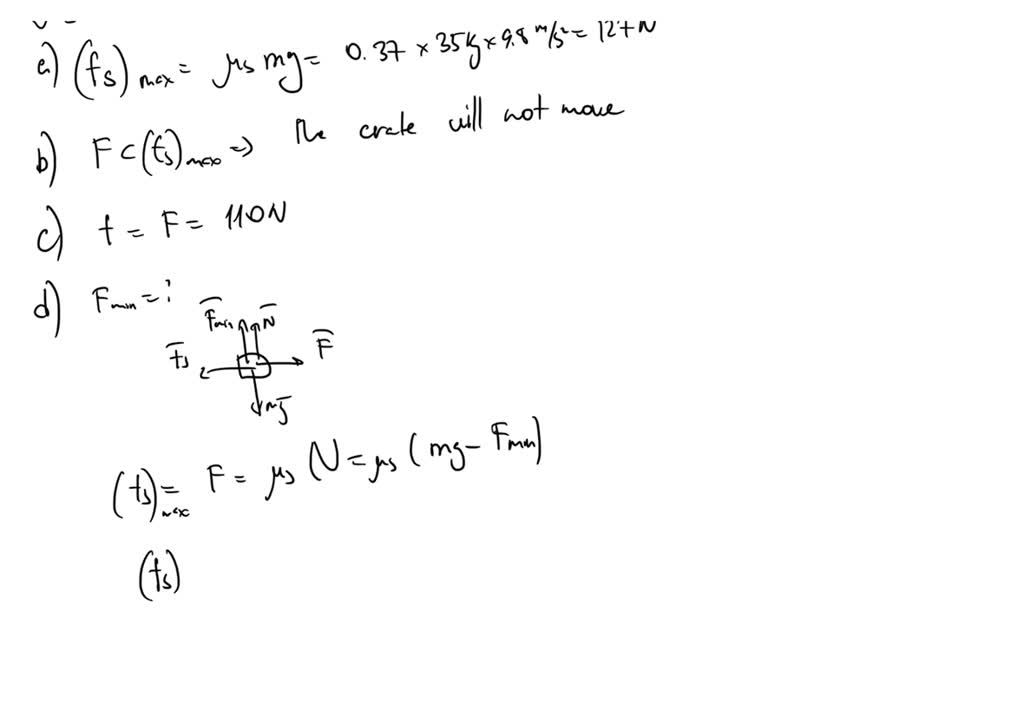 a) (fs)max = μs mg = 0.37 × 35kg × 9.8 m/s² = 127 N
b) F < (fs)max => The crate will not move
c) f = F = 110N
d) Fmin = ?
Fmin N
fs F
mg
(fs)max = F = μs N = μs (mg - Fmin)
(fs)